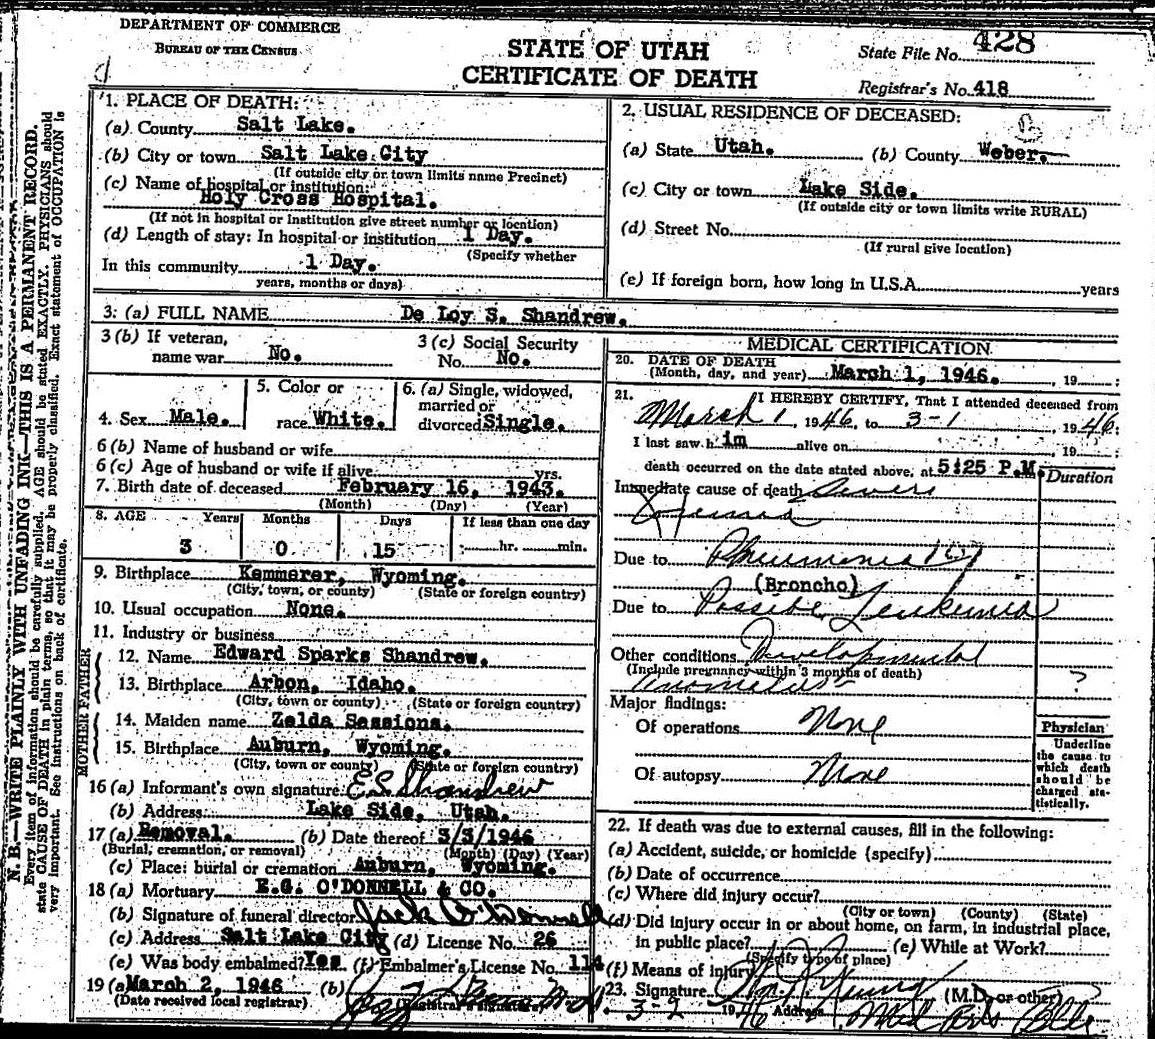 DEPARTMENT OF COMMERCE
BUREAU OF THE CENSUS
STATE OF UTAH
CERTIFICATE OF DEATH
State File No. 428
Registrar's No. 418
N. B.—WRITE PLAINLY WITH UNFADING INK—THIS IS A PERMANENT RECORD.
Every item of information should be carefully supplied. AGE should be stated EXACTLY. PHYSICIANS should
state CAUSE OF DEATH in plain terms, so that it may be properly classified. Exact statement of OCCUPATION is
very important. See instructions on back of certificate.
1. PLACE OF DEATH:
(a) County Salt Lake.
(b) City or town Salt Lake City
(If outside city or town limits name Precinct)
(c) Name of hospital or institution:
Holy Cross Hospital.
(If not in hospital or institution give street number or location)
(d) Length of stay: In hospital or institution 1 Day.
(Specify whether
In this community 1 Day.
years, months or days)
2. USUAL RESIDENCE OF DECEASED:
(a) State Utah. (b) County Weber.
(c) City or town Lake Side.
(If outside city or town limits write RURAL)
(d) Street No.
(If rural give location)
(e) If foreign born, how long in U.S.A. years
3: (a) FULL NAME De Loy S. Shandrew.
3 (b) If veteran, name war No.
3 (c) Social Security No. No.
4. Sex Male.
5. Color or race White.
6. (a) Single, widowed, married or divorced Single.
6 (b) Name of husband or wife
6 (c) Age of husband or wife if alive yrs.
7. Birth date of deceased February 16, 1943.
(Month) (Day) (Year)
8. AGE Years Months Days If less than one day
3 0 15 hr. min.
9. Birthplace Kemmerer, Wyoming.
(City, town, or county) (State or foreign country)
10. Usual occupation None.
11. Industry or business
FATHER
12. Name Edward Sparks Shandrew.
13. Birthplace Arbon, Idaho.
(City, town or county) (State or foreign country)
MOTHER
14. Maiden name Zelda Sessions.
15. Birthplace Auburn, Wyoming.
(City, town or county) (State or foreign country)
16 (a) Informant's own signature E S Shandrew
(b) Address Lake Side, Utah.
17 (a) Removal. (b) Date thereof 3/3/1946
(Burial, cremation, or removal) (Month) (Day) (Year)
(c) Place: burial or cremation Auburn, Wyoming.
18 (a) Mortuary E.G. O'DONNELL & CO.
(b) Signature of funeral director Jack O'Donnell
(c) Address Salt Lake City (d) License No. 26
(e) Was body embalmed? Yes (f) Embalmer's License No. 114
19 (a) March 2, 1946 (b)
(Date received local registrar) (Registrar's signature)
MEDICAL CERTIFICATION
20. DATE OF DEATH
(Month, day, and year) March 1, 1946. , 19
21. I HEREBY CERTIFY, That I attended deceased from
March 1, 1946, to 3-1 1946;
I last saw h im alive on , 19
death occurred on the date stated above, at 5:25 P.M.
Duration
Immediate cause of death Severe
Due to Pneumonia
(Broncho)
Due to Possible Leukemia
Other conditions Developmental
(Include pregnancy within 3 months of death)
?
Major findings:
Of operations None
Of autopsy None
Physician
Underline
the cause to
which death
should be
charged sta-
tistically.
22. If death was due to external causes, fill in the following:
(a) Accident, suicide, or homicide (specify)
(b) Date of occurrence
(c) Where did injury occur?
(City or town) (County) (State)
(d) Did injury occur in or about home, on farm, in industrial place,
in public place? (e) While at Work?
(Specify type of place)
(f) Means of injury
23. Signature Young (M.D. or other)
3-2 1946 Address Med Arts Bldg.